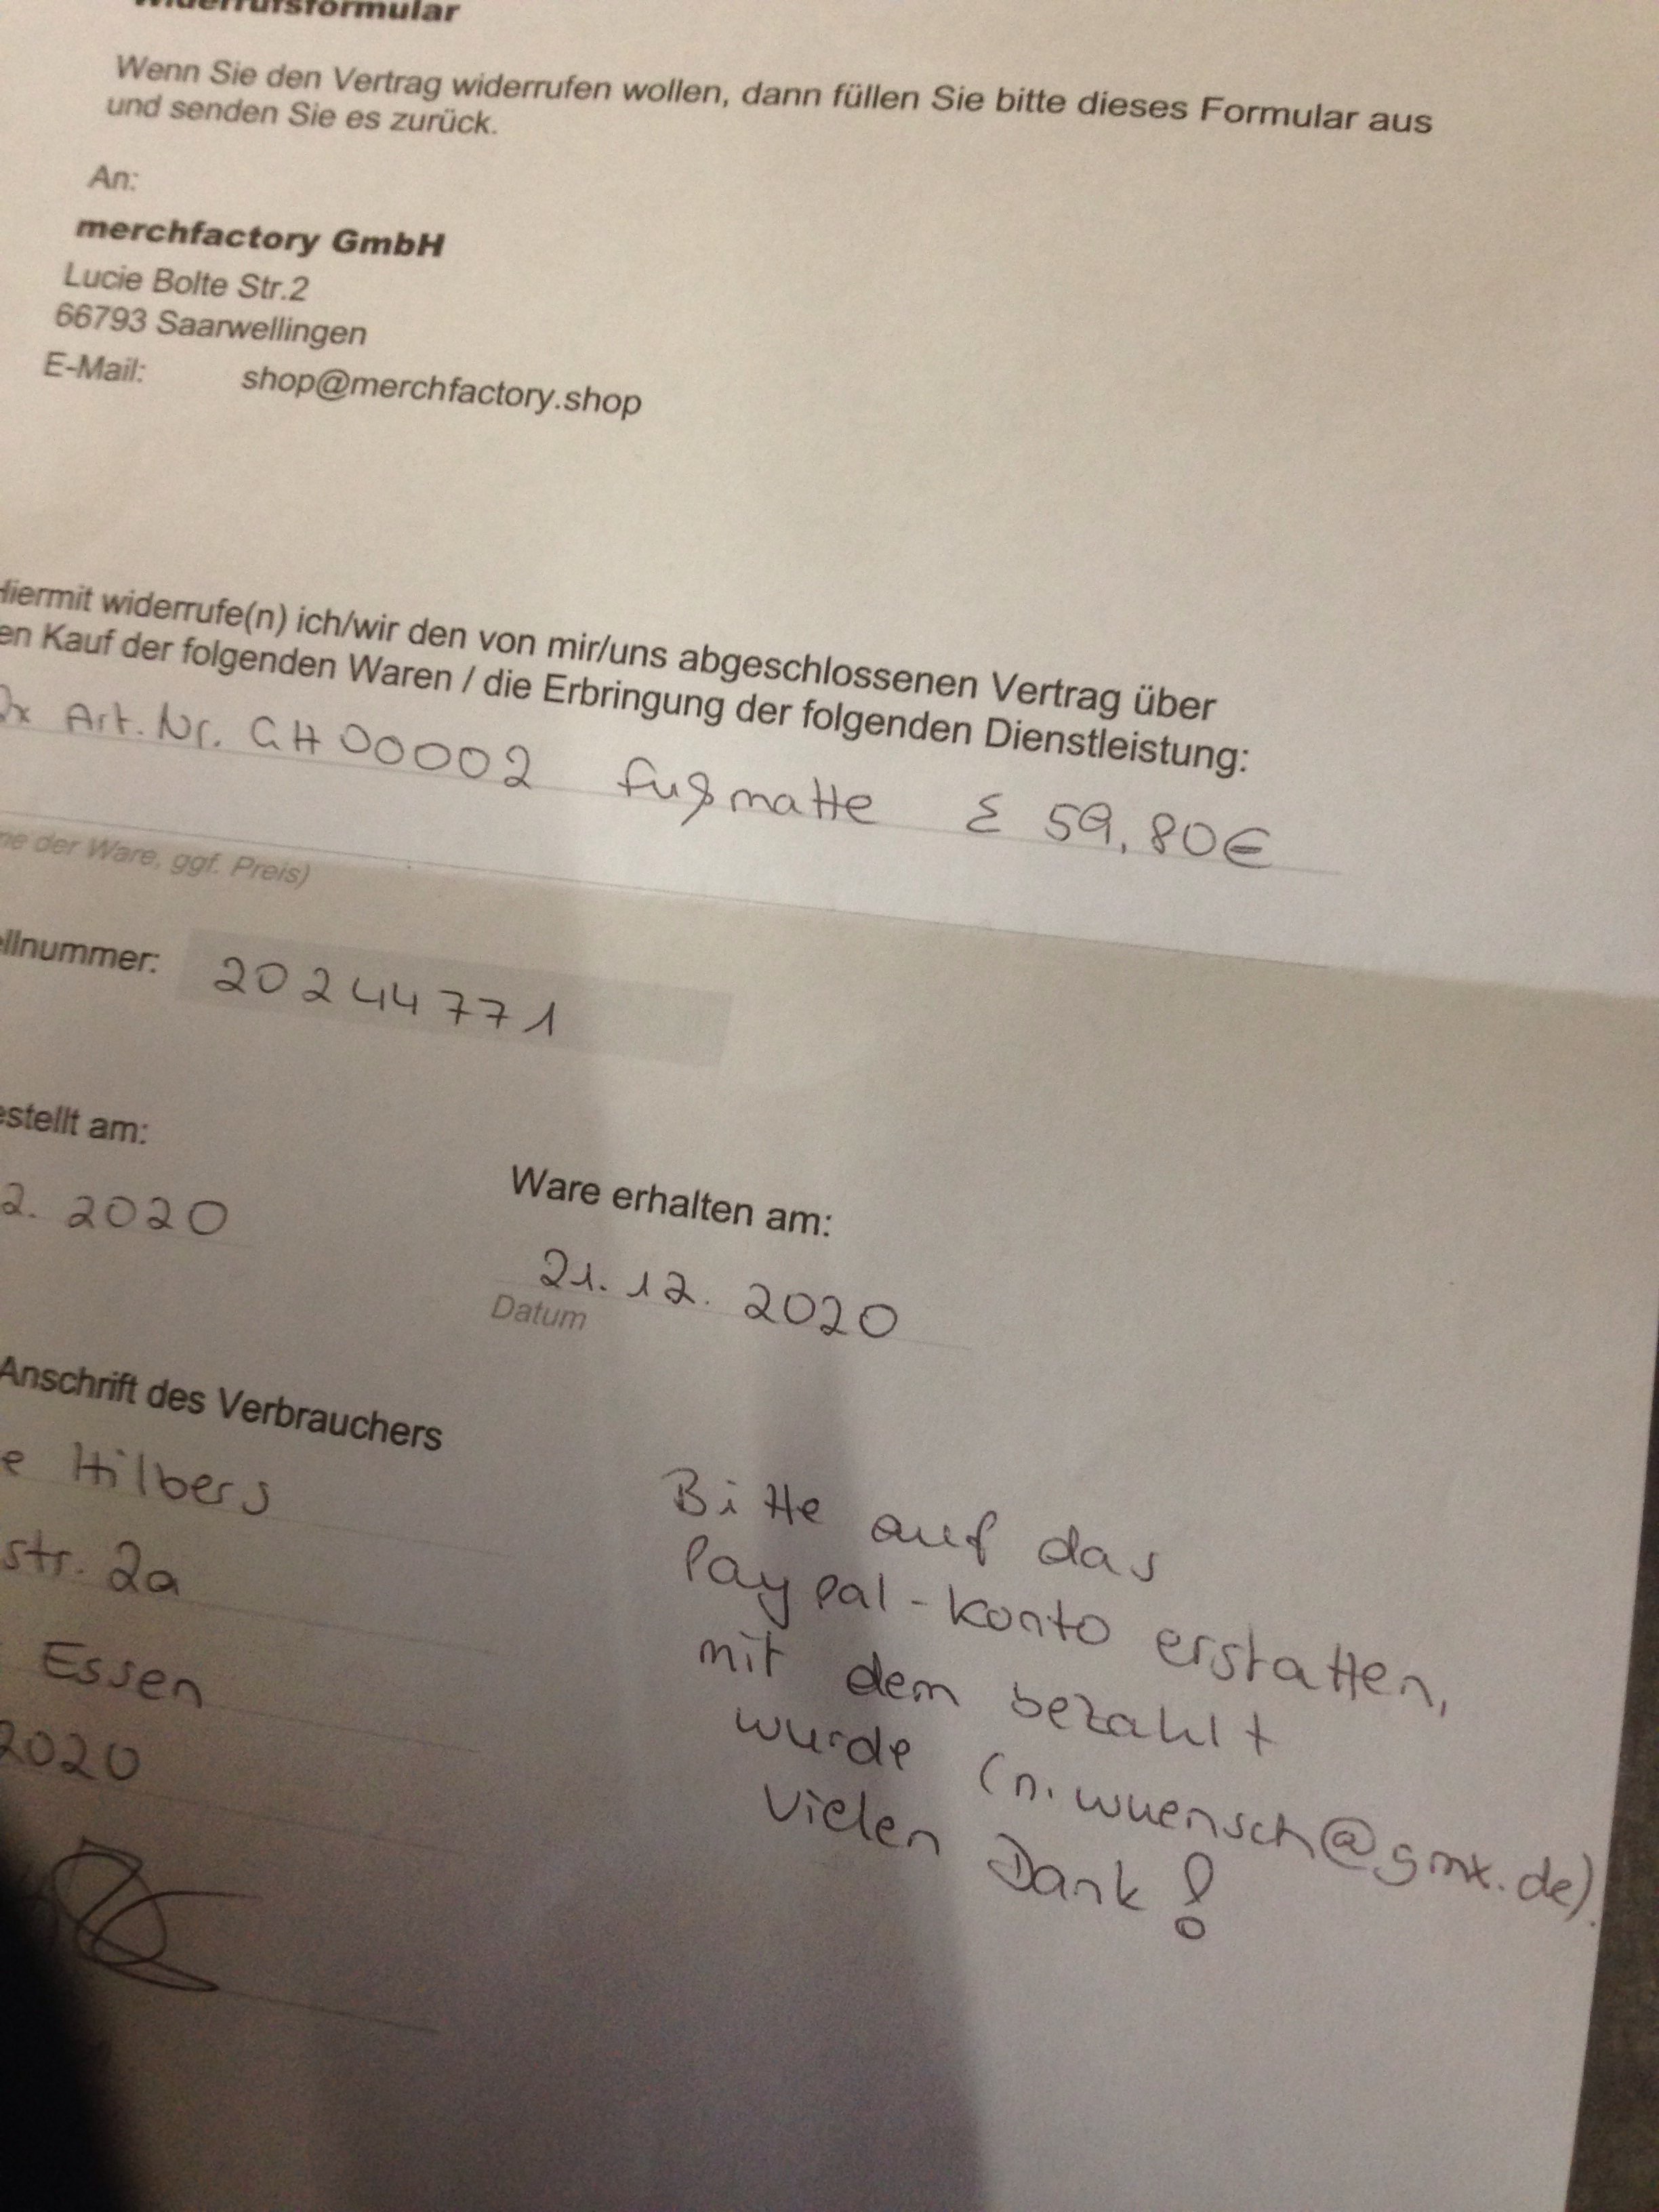 Widerrufsformular
Wenn Sie den Vertrag widerrufen wollen, dann füllen Sie bitte dieses Formular aus
und senden Sie es zurück.
An:
merchfactory GmbH
Lucie Bolte Str.2
66793 Saarwellingen
E-Mail: shop@merchfactory.shop
Hiermit widerrufe(n) ich/wir den von mir/uns abgeschlossenen Vertrag über
en Kauf der folgenden Waren / die Erbringung der folgenden Dienstleistung:
2x Art. Nr. GH00002 Fußmatte Σ 59,80€
me der Ware, ggf. Preis)
ellnummer: 20244771
estellt am:
2. 2020
Ware erhalten am:
21.12.2020
Datum
Anschrift des Verbrauchers
e Hilbers
str. 2a
Essen
2020
Bitte auf das
Paypal-Konto erstatten,
mit dem bezahlt
wurde (n.wuensch@gmx.de).
Vielen Dank!